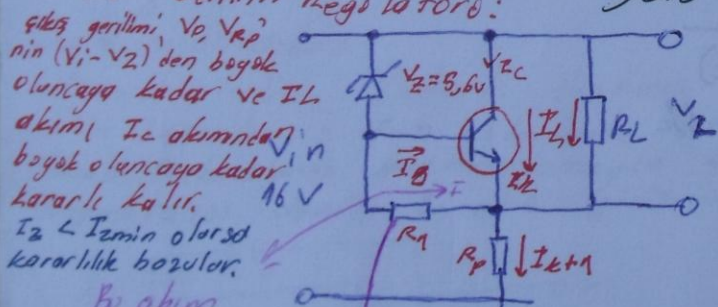 Regülatörü:
çıkış gerilimi, Vo, VRp'
nin (Vi-VZ)'den boyok
oluncaya kadar ve IL
akımı Ic akımından
boyok oluncaya kadar
kararlı kalır.
Iz < Izmin olursa
kararlılık bozulur.
Bu akım
VZ=5,6v
Ic
IL
RL
Vin
16 V
IB
I
R1
Rp